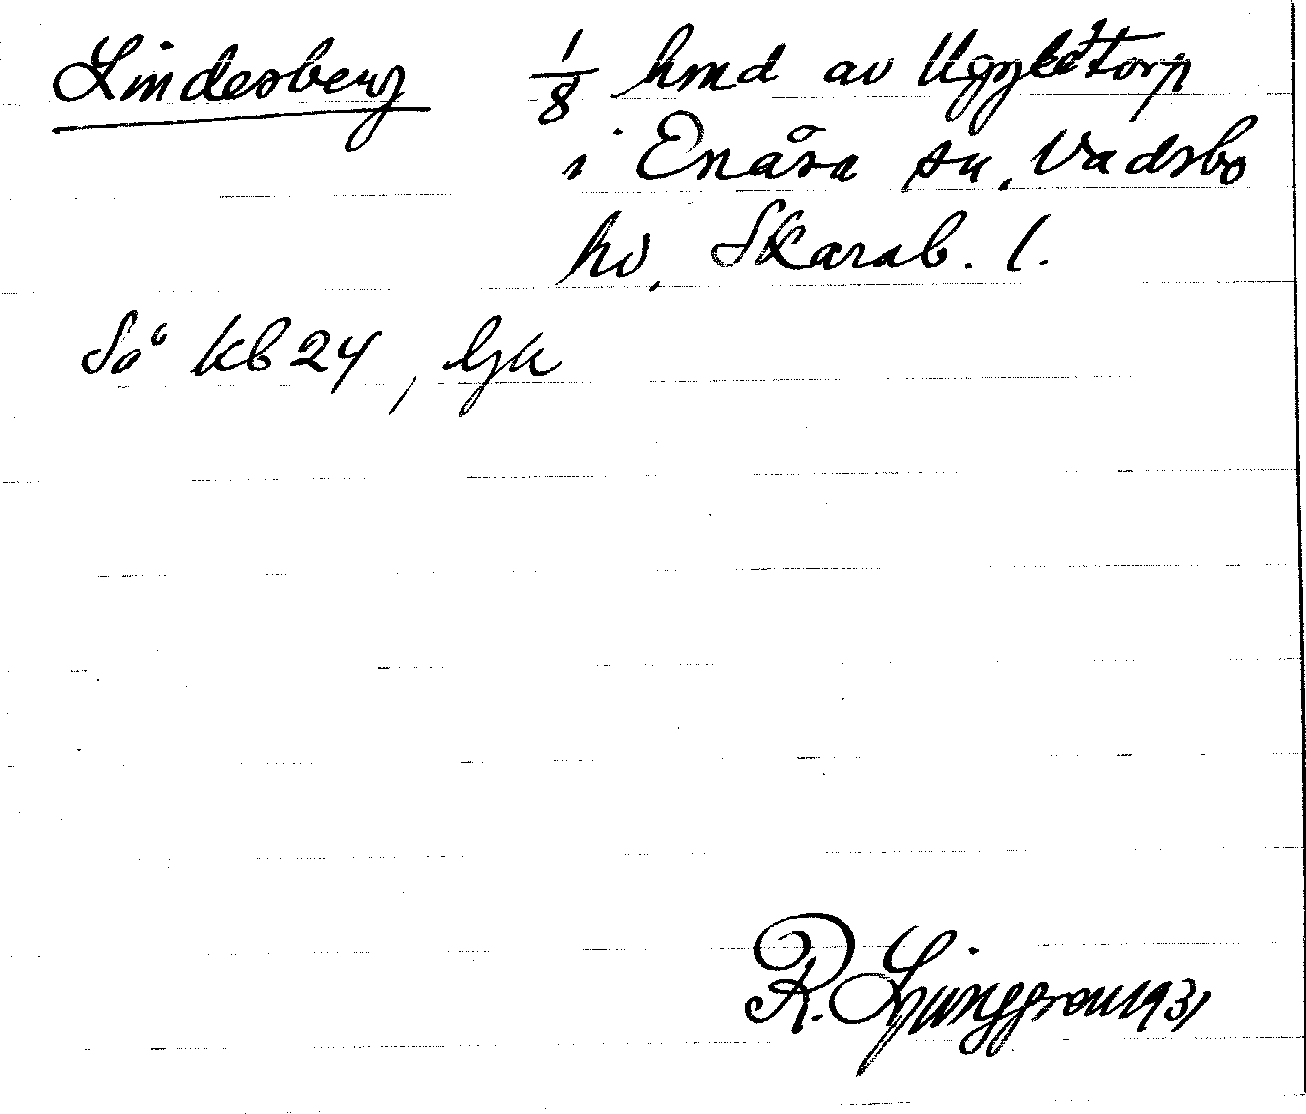 Lindesberg 1/8 hmd av Uggletorp
i Enåsa sn, Vadsbo
hd, Skarab. l.
Så kb 24, ljk
R. Ljunggren 1931